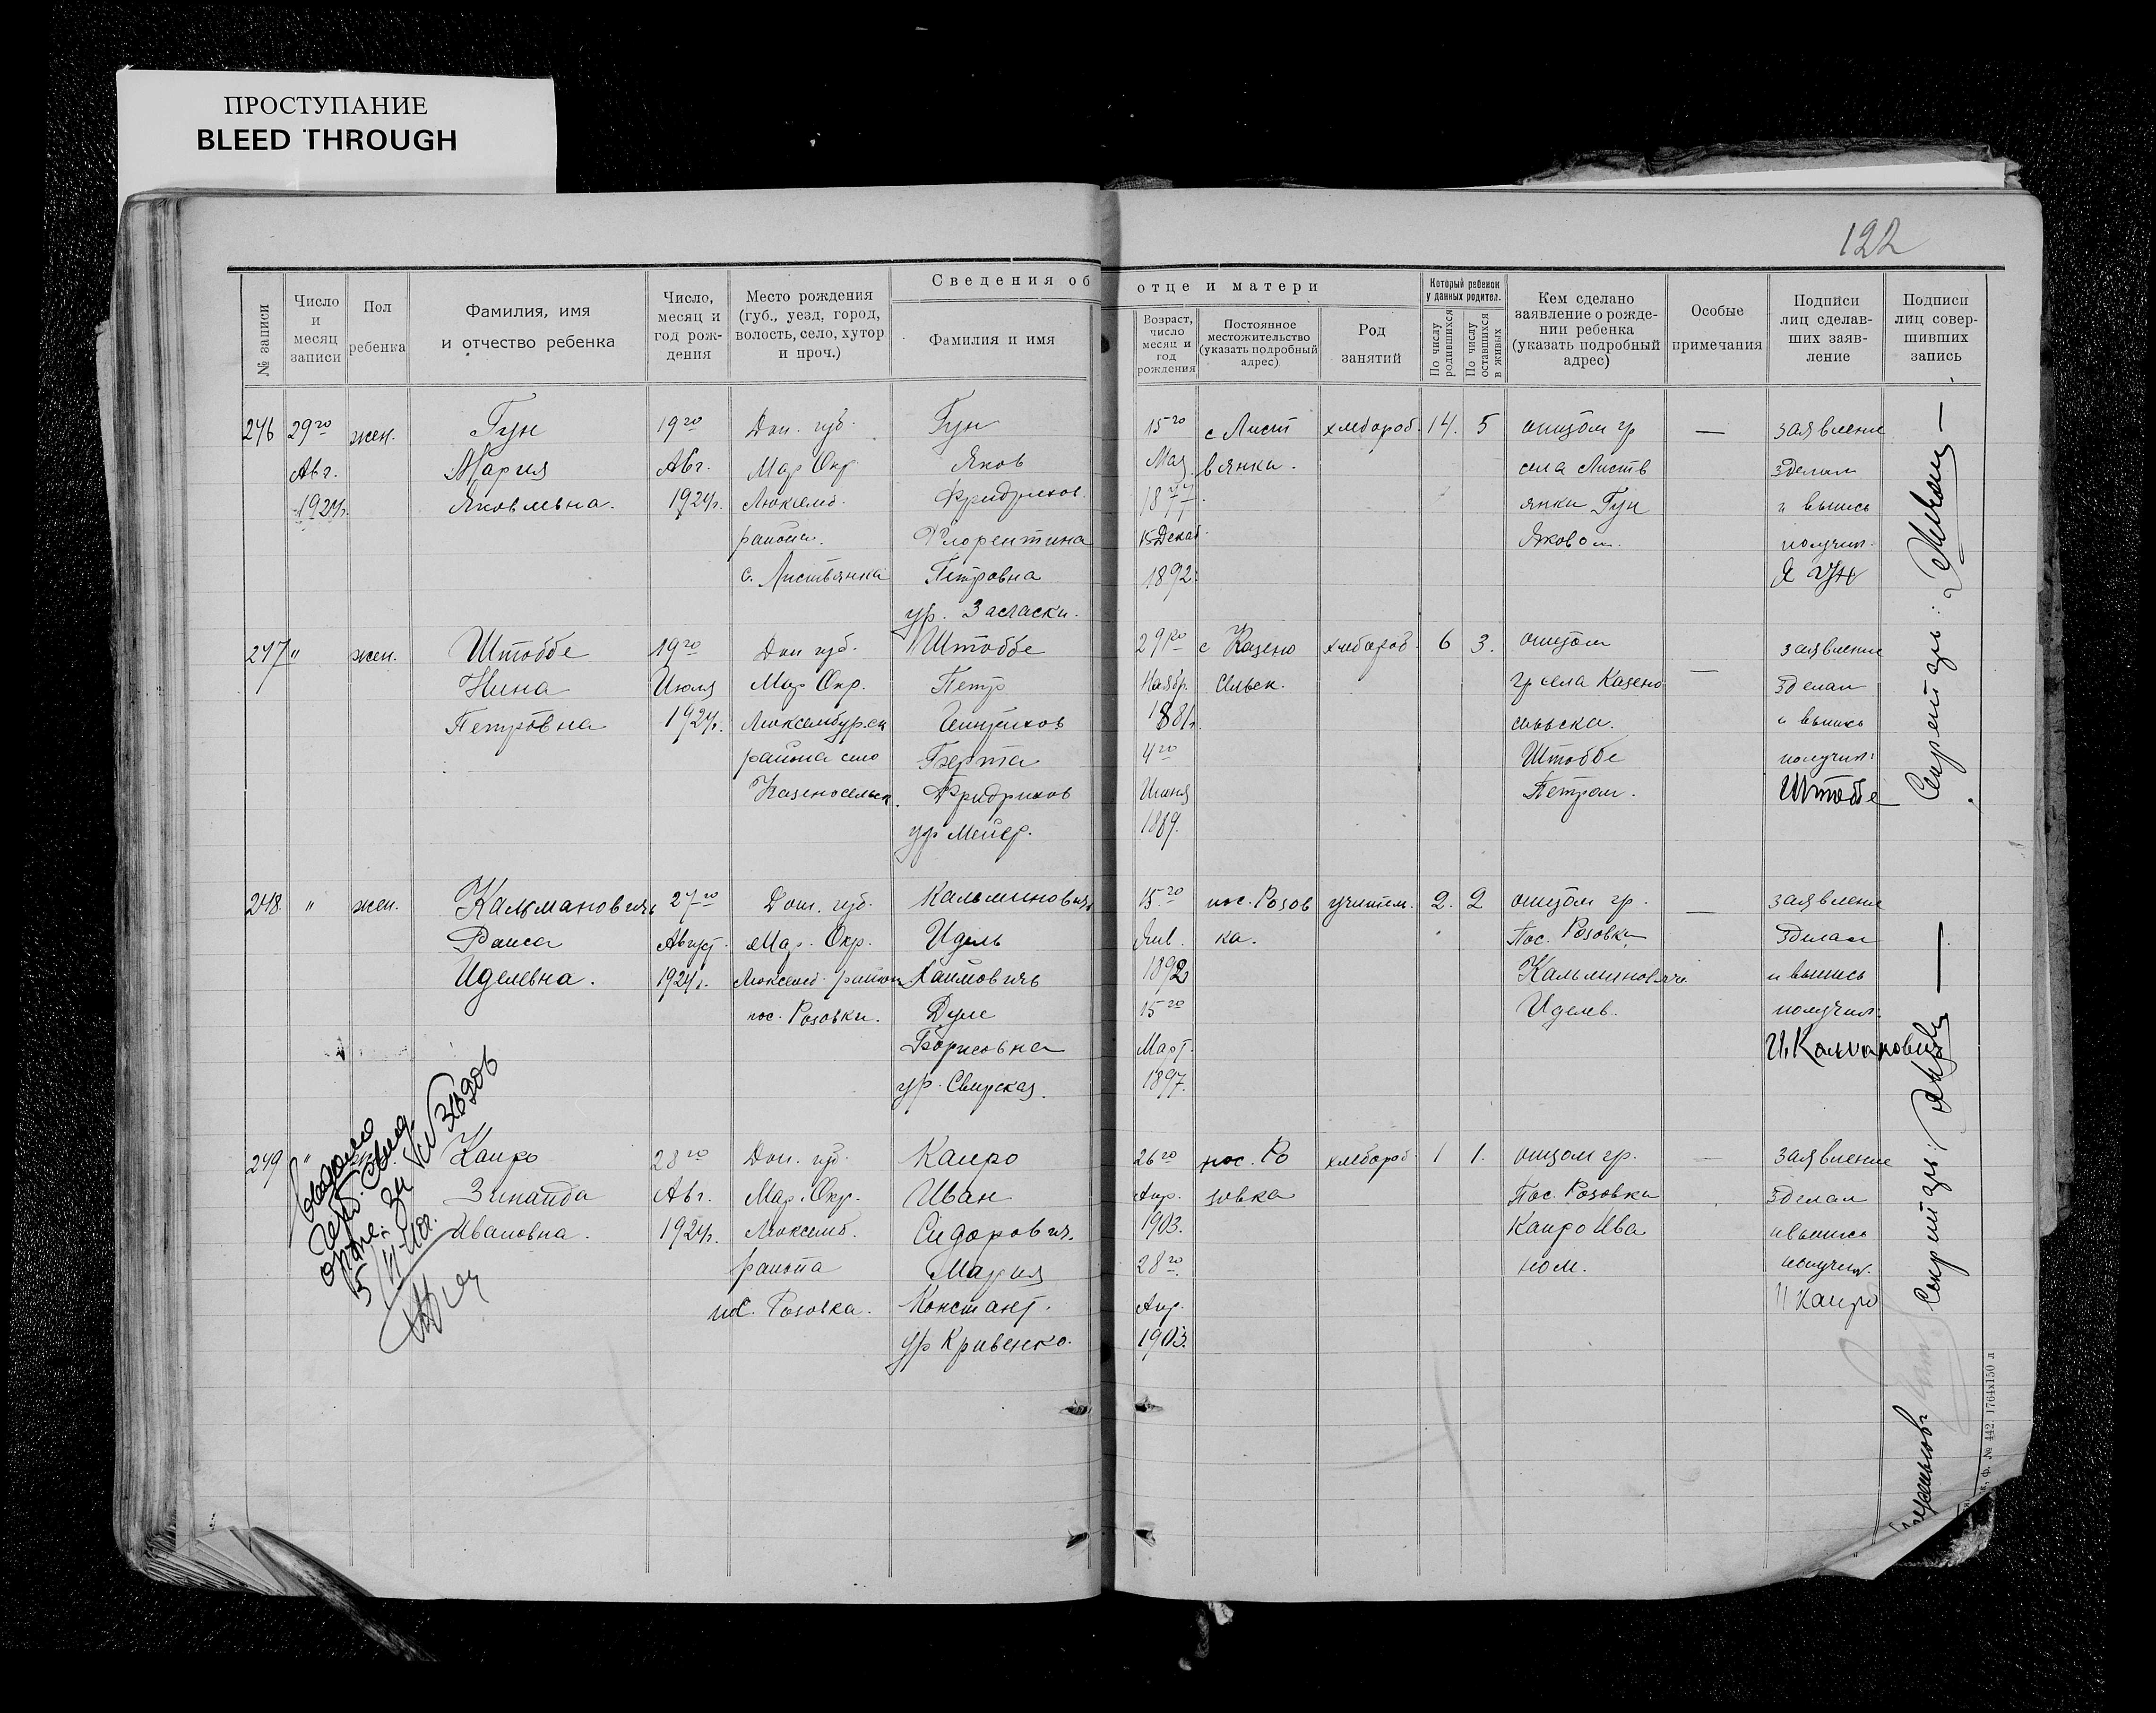 ПРОСТУПАНИЕ
BLEED THROUGH
122
Сведения об отце и матери
№ записи
Число и месяц записи
Пол ребенка
Фамилия, имя и отчество ребенка
Число, месяц и год рождения
Место рождения (губ., уезд, город, волость, село, хутор и проч.)
Фамилия и имя
Возраст, число месяц и год рождения
Постоянное местожительство (указать подробный адрес)
Род занятий
Который ребенок у данных родител.
По числу родившихся
По числу оставшихся в живых
Кем сделано заявление о рождении ребенка (указать подробный адрес)
Особые примечания
Подписи лиц сделавших заявление
Подписи лиц совершивших запись
246 29го жен. Гун 19го Дон. губ. Гун 15го с Листв хлебороб. 14. 5 отцом гр — заявление
Авг. Мария Авг. Мар Окр. Яков Мая вянка. села Листв зделал
1924г. Яковлевна. 1924г. Люксемб. Фридрихов. 1877. янки Гун и выпись
района. Флорентина 15 Декаб. Яковом. получил.
с. Листвянка Петровна 1892. Я Гун
ур.
247 " жен. Штоббе 19го Дон губ. Штоббе 29го с Казено хлебороб. 6 3. отцом — заявление
Нина Июля Мар Окр. Петр Ноябр. сельск. гр села Казено зделал
Петровна 1924г. Люксембурск Генрихов 1881г. сельска. и выпись
района село Берта 4го Штоббе получил.
Казеносельск. Фридрихов Июня Петром. Штоббе
ур Мейер. 1889.
248. " жен. Кальманович 27го Дон. губ. Кальминович 15го пос. Розов учител. 2. 2 отцом гр. — заявление
Раиса Август. Мар. Окр. Идель ка. Пос. Розовки зделал
Иделевна. 1924г. Люксемб. район Хаимовичь 1892 Кальминович и выпись
пос. Розовки. 15го Иделев. получил.
Борисовна Март. И. Кальманович
ур. Свирская. 1897.
249 " Каиро 28го Дон. губ. Каиро 26го пос. Ро хлебороб. 1 1. отцом гр. — заявление
Зинаида Авг. Мар. Окр. Иван Апр. зовка Пос. Розовки зделал
Ивановна. 1924г. Люксемб. Сидорович. 1903. Каиро Ива и выпись
района Мария 28го ном. получил.
пос. Розовка. Констант. Апр. И Каиро
ур Кривенко. 1903.
Секретарь:
Секретарь:
Ф. № 442. 1764х150 л